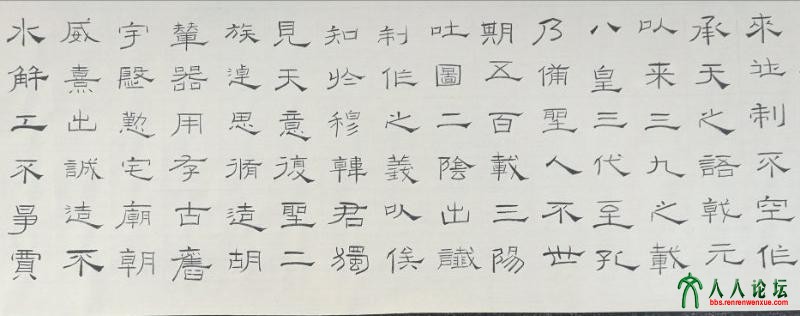 來吐制不空作
承天之語乾元
以来三九之載
八皇三代至孔
乃備聖人不世
期五百載三陽
吐圖二陰出讖
制作之義以俟
知於穆韓君獨
見天意復聖二
族逴思脩造胡
輦器用存古舊
宇慇懃宅廟朝
威熹出誠造不
水解工不爭賈
人人论坛
bbs.renrenwenxue.com